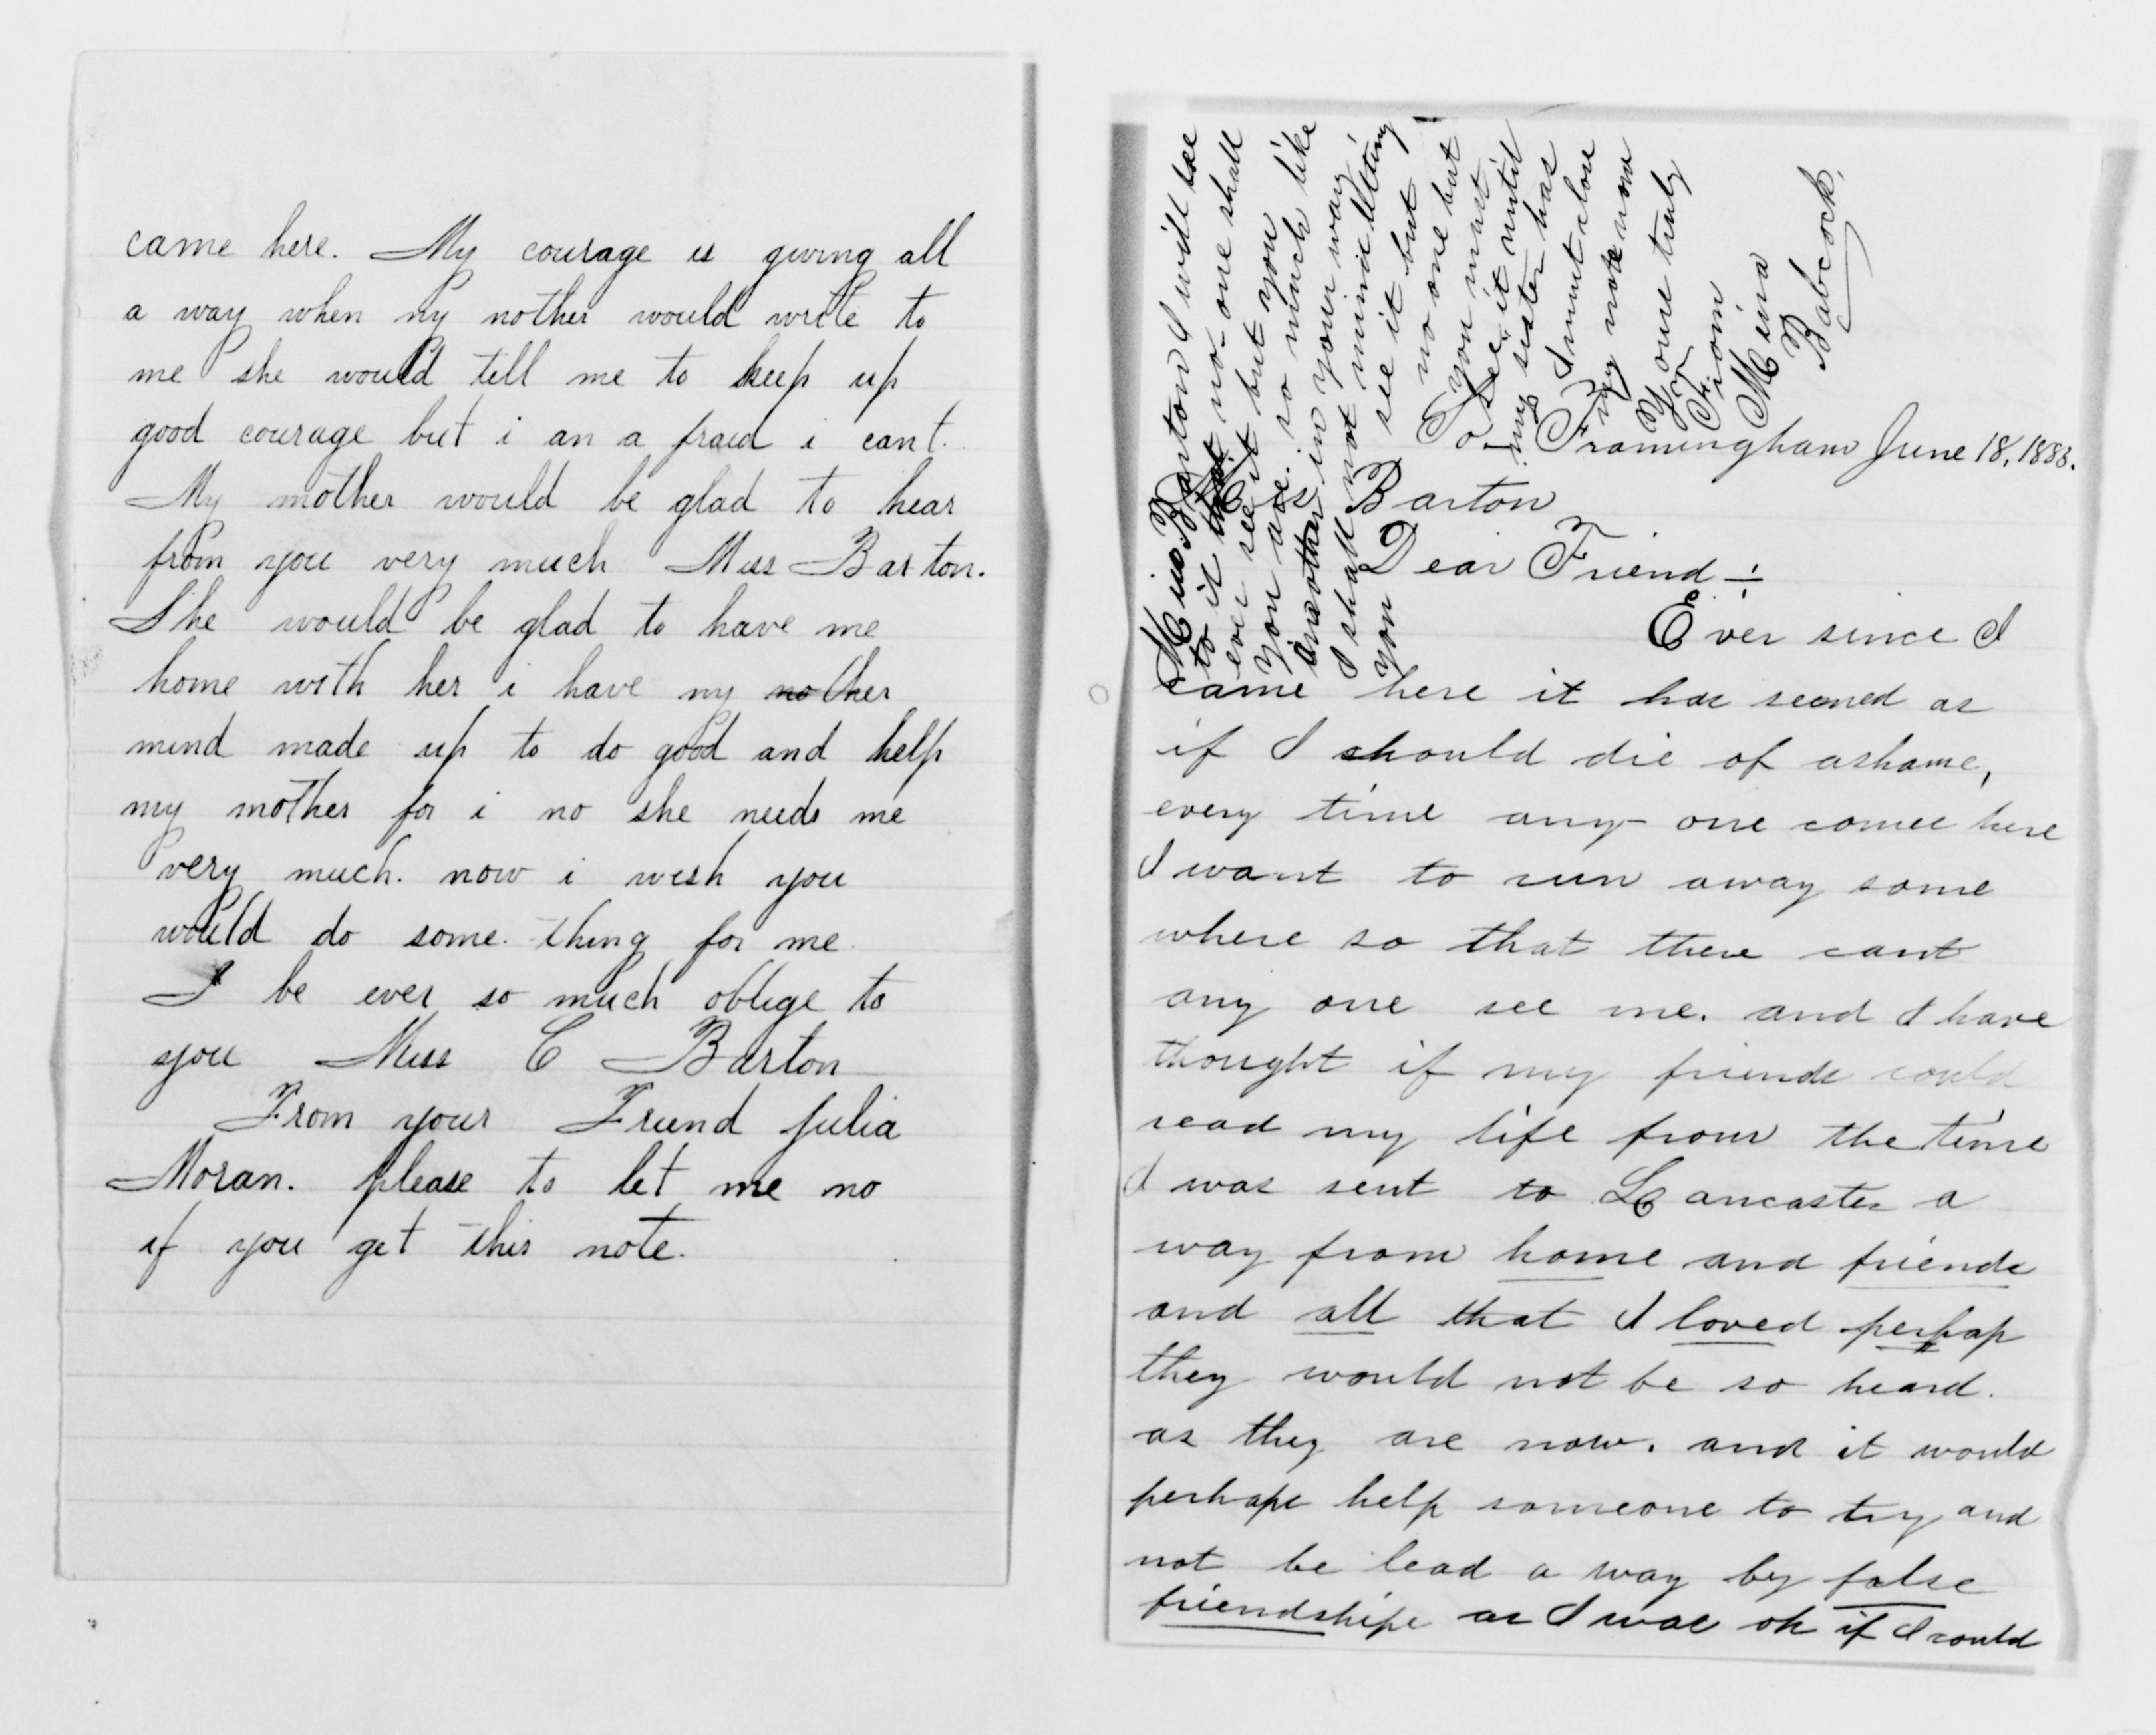 came here. My courage is giving all
a way when ny nother would write to
me she would tell me to keep up
good courage but i an a fraid i cant.
My mother would be glad to hear
from you very much Miss Barton.
She would be glad to have me
home with her i have my nother
mind made up to do good and help
my mother for i no she needs me
very much. now i wish you
would do some thing for me.
I be ever so much oblige to
you Miss C Barton
From your Friend Julia
Moran. please to let me no
if you get this note.
Miss Barton I will see
to it that no-one shall
ever see it but you
you are so much like
another in your way
I shall not mind letting
you see it but
no one but
you must
see it until
my sister has
I must close
my note now
Yours truly
From
Mina
Babcock.
So. Framingham June 18, 1883.
Miss Barton
Dear Friend:
Ever since I
came here it has seemed as
if I should die of ashame,
every time any-one comes here
I want to run away some
where so that there cant
any one see me. and I have
thought if my friends could
read my life from the time
I was sent to Lancaster a
way from home and friends
and all that I loved perhap
they would not be so heard.
as they are now. and it would
perhaps help someone to try and
not be lead a way by false
friendships as I was oh if I could